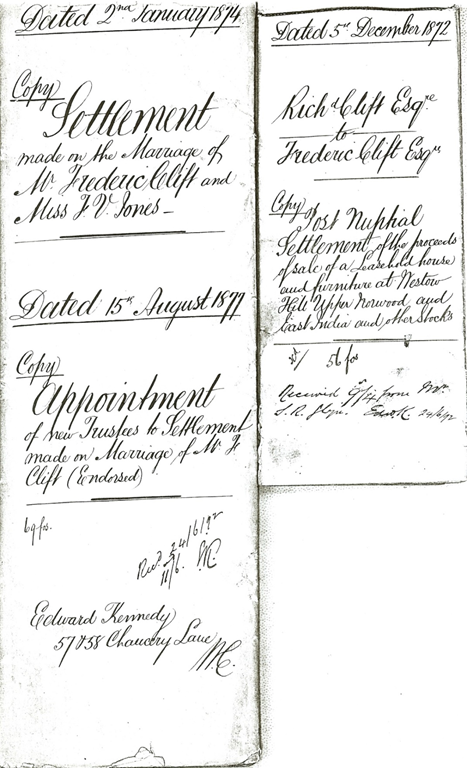 Dated 2nd January 1874
Copy
Settlement
made on the Marriage of
Mr Frederic Clift and
Miss F V Jones
Dated 15th August 1877
Copy
Appointment
of new Trustees to Settlement
made on Marriage of Mr F
Clift (Endorsed)
69 fos.
Recd 24/6/92
11/6
Edward Kennedy
57 & 58 Chancery Lane
W.C.
Dated 5th December 1872
Richd Clift Esqre
to
Frederic Clift Esqre
Copy of
Post Nuptial
Settlement of the proceeds
of sale of a Leasehold house
and furniture at Westow
Hill Upper Norwood and
East India and other stocks
56 fos
Received from Mr.
24/6/92